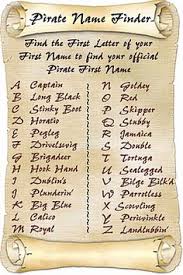 Pirate Name Finder
Find the First Letter of your
First Name to find your official
Pirate First Name
A Captain
B Long Black
C Stinky Boot
D Horatio
E Pegleg
F Drivelswig
G Brigadeer
H Hook Hand
I Dublin's
J Plunderin'
K Bigbeard
L Calico
M Royal
N Goldey
O Red
P Skipper
Q Stubby
R Jamaica
S Double
T Tortuga
U Sealegged
V Bilge Bilk'd
W Parrotless
X Scowling
Y Periwinkle
Z Landlubbin'